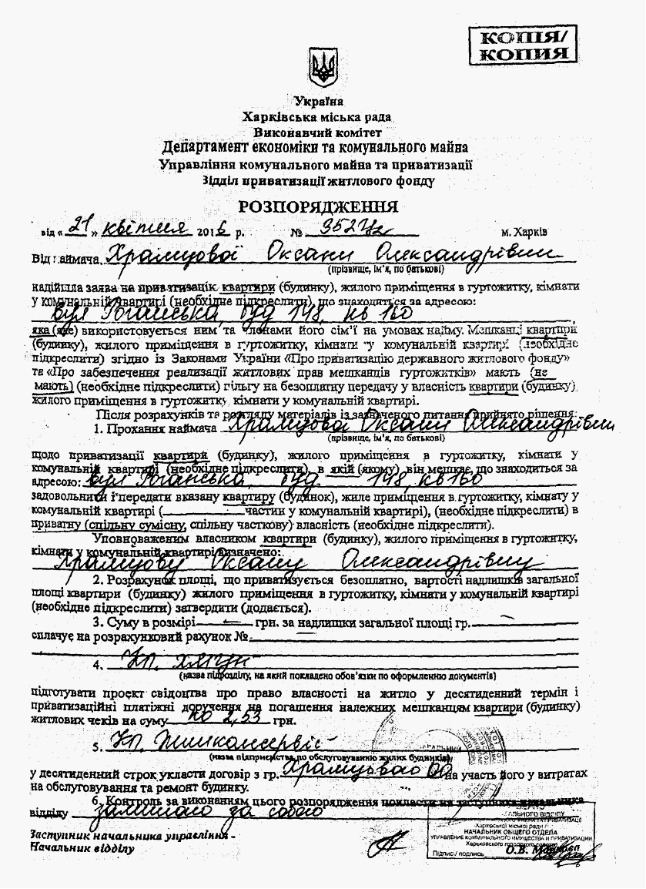 КОПІЯ/
КОПИЯ
Україна
Харківська міська рада
Виконавчий комітет
Департамент економіки та комунального майна
Управління комунального майна та приватизації
Відділ приватизації житлового фонду
РОЗПОРЯДЖЕННЯ
від « 21 » квітня 2016 р. № м. Харків
Від наймача Храмцової Оксани Олександрівни
(прізвище, ім'я, по батькові)
надійшла заява на приватизацію квартири (будинку), жилого приміщення в гуртожитку, кімнати
у комунальній квартирі (необхідне підкреслити), що знаходиться за адресою:
вул Роганська буд 148, кв 160
яка (яке) використовується ним та членами його сім'ї на умовах найму. Мешканці квартири
(будинку), жилого приміщення в гуртожитку, кімнати у комунальній квартирі (необхідне
підкреслити) згідно із Законами України «Про приватизацію державного житлового фонду»
та «Про забезпечення реалізації житлових прав мешканців гуртожитків» мають (не
мають) (необхідне підкреслити) пільгу на безоплатну передачу у власність квартири (будинку)
жилого приміщення в гуртожитку, кімнати у комунальній квартирі.
Після розрахунків та розгляду матеріалів із зазначеного питання прийнято рішення:
1. Прохання наймача Храмцової Оксани Олександрівни
(прізвище, ім'я, по батькові)
щодо приватизації квартири (будинку), жилого приміщення в гуртожитку, кімнати у
комунальній квартирі (необхідне підкреслити), в якій (якому) він мешкає, що знаходиться за
адресою: вул Роганська, буд 148, кв 160
задовольнити і передати вказану квартиру (будинок), жиле приміщення в гуртожитку, кімнату у
комунальній квартирі ( частин у комунальній квартирі), (необхідне підкреслити) в
приватну (спільну сумісну, спільну часткову) власність (необхідне підкреслити).
Уповноваженим власником квартири (будинку), жилого приміщення в гуртожитку,
кімнати у комунальній квартирі визначено:
Храмцову Оксану Олександрівну
2. Розрахунок площі, що приватизується безоплатно, вартості надлишків загальної
площі квартири (будинку) жилого приміщення в гуртожитку, кімнати у комунальній квартирі
(необхідне підкреслити) затвердити (додається).
3. Суму в розмірі — грн. за надлишки загальної площі гр.
сплачує на розрахунковий рахунок №
4. КП
(назва підрозділу, на який покладено обов'язки по оформленню документів)
підготувати проект свідоцтва про право власності на житло у десятиденний термін і
приватизаційні платіжні доручення на погашення належних мешканцям квартири (будинку)
житлових чеків на суму по 2,53 грн.
5. КП Жилкомсервіс
(назва підприємства по обслуговуванню жилих будинків)
у десятиденний строк укласти договір з гр. Храмцовою ОО на участь його у витратах
на обслуговування та ремонт будинку.
6. Контроль за виконанням цього розпорядження покласти на заступника начальника
відділу залишаю за собою
Заступник начальника управління -
Начальник відділу
Харківської міської ради
НАЧАЛЬНИК ОБЩЕГО ОТДЕЛА
УПРАВЛЕНИЕ КОММУНАЛЬНОГО ИМУЩЕСТВА И ПРИВАТИЗАЦИИ
Харьковского городского совета
Підпис/ подпись О.В.